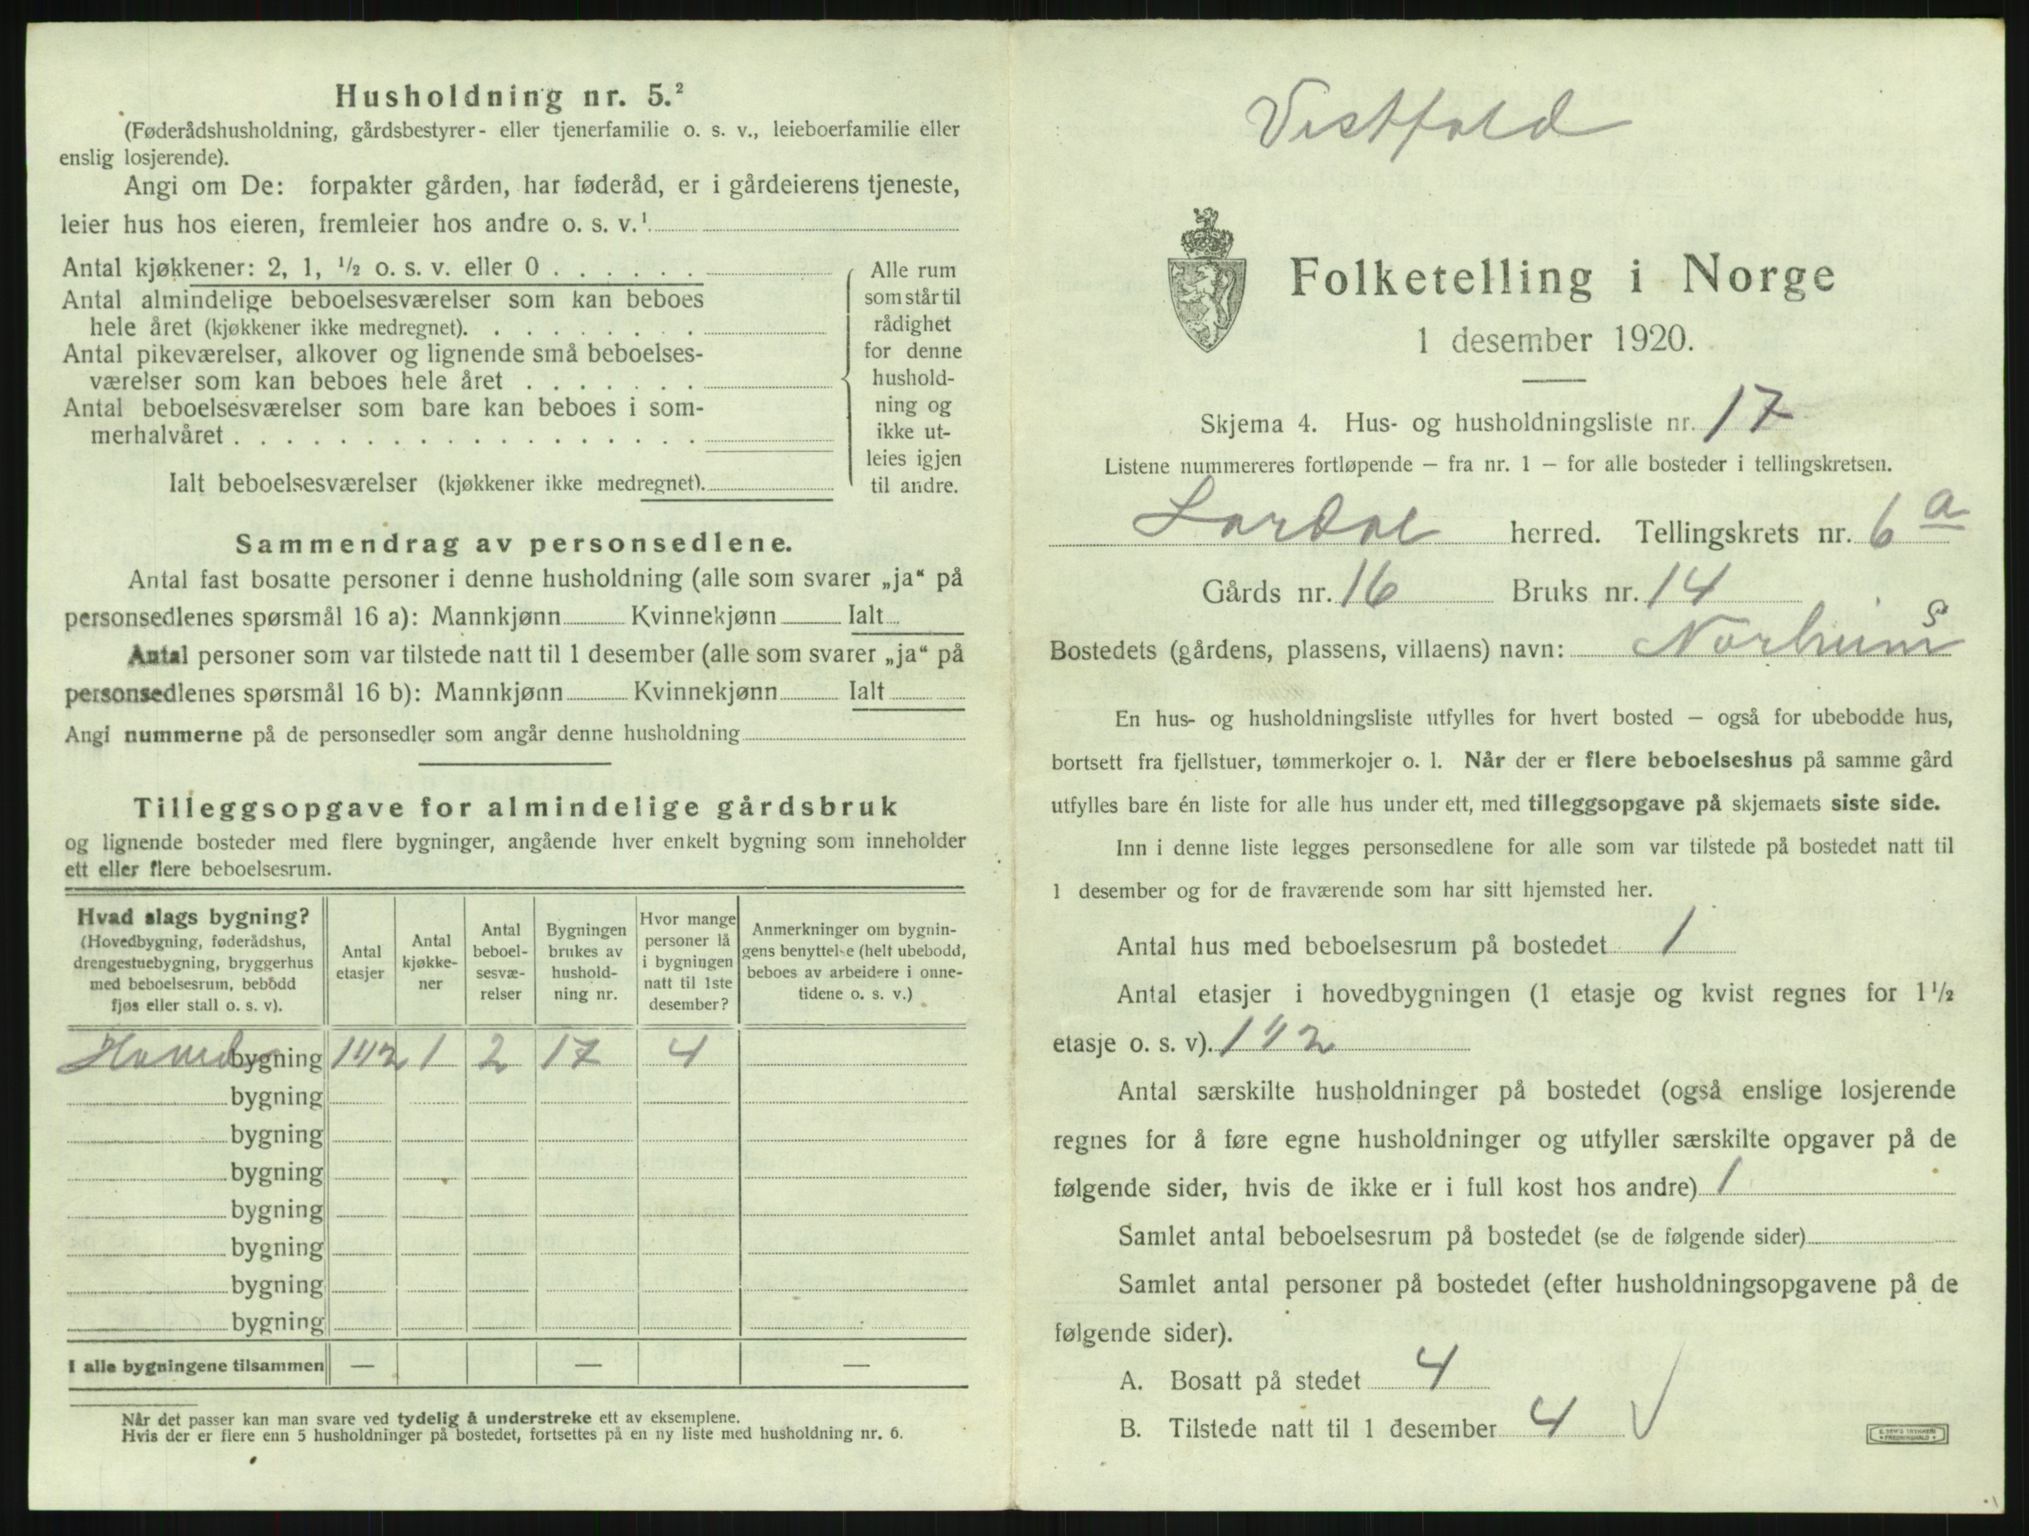 Husholdning nr. 5.²
(Føderådshusholdning, gårdsbestyrer- eller tjenerfamilie o. s. v., leieboerfamilie eller
enslig losjerende).
Angi om De: forpakter gården, har føderåd, er i gårdeierens tjeneste,
leier hus hos eieren, fremleier hos andre o. s. v.¹
Antal kjøkkener: 2, 1, ½ o. s. v. eller 0 . . . . . .
Antal almindelige beboelsesværelser som kan beboes
hele året (kjøkkener ikke medregnet). . . . . . . . .
Antal pikeværelser, alkover og lignende små beboelses-
værelser som kan beboes hele året . . . . . . .
Antal beboelsesværelser som bare kan beboes i som-
merhalvåret . . . . . . . . . . . . . . . . . .
Ialt beboelsesværelser (kjøkkener ikke medregnet).
Alle rum
som står til
rådighet
for denne
hushold-
ning og
ikke ut-
leies igjen
til andre.
Sammendrag av personsedlene.
Antal fast bosatte personer i denne husholdning (alle som svarer „ja“ på
personsedlenes spørsmål 16 a): Mannkjønn Kvinnekjønn Ialt
Antal personer som var tilstede natt til 1 desember (alle som svarer „ja“ på
personsedlenes spørsmål 16 b): Mannkjønn Kvinnekjønn Ialt
Angi nummerne på de personsedler som angår denne husholdning
Tilleggsopgave for almindelige gårdsbruk
og lignende bosteder med flere bygninger, angående hver enkelt bygning som inneholder
ett eller flere beboelsesrum.
Hvad slags bygning?
(Hovedbygning, føderådshus,
drengestuebygning, bryggerhus
med beboelsesrum, bebodd
fjøs eller stall o. s. v).
Antal
etasjer
Antal
kjøkke-
ner
Antal
beboel-
sesvæ-
relser
Bygningen
brukes av
hushold-
ning nr.
Hvor mange
personer lå
i bygningen
natt til 1ste
desember?
Anmerkninger om bygnin-
gens benyttelse (helt ubebodd,
beboes av arbeidere i onne-
tidene o. s. v.)
Hovedbygning 1 1/2 1 2 17 4
bygning
bygning
bygning
bygning
bygning
bygning
bygning
I alle bygningene tilsammen — — —
Når det passer kan man svare ved tydelig å understreke ett av eksemplene.
Hvis der er flere enn 5 husholdninger på bostedet, fortsettes på en ny liste med husholdning nr. 6.
Vestfold
Folketelling i Norge
1 desember 1920.
Skjema 4. Hus- og husholdningsliste nr. 17
Listene nummereres fortløpende — fra nr. 1 — for alle bosteder i tellingskretsen.
Lardal herred. Tellingskrets nr. 6 a
Gårds nr. 16 Bruks nr. 14
Bostedets (gårdens, plassens, villaens) navn: Norheim
En hus- og husholdningsliste utfylles for hvert bosted — også for ubebodde hus,
bortsett fra fjellstuer, tømmerkojer o. l. Når der er flere beboelseshus på samme gård
utfylles bare én liste for alle hus under ett, med tilleggsopgave på skjemaets siste side.
Inn i denne liste legges personsedlene for alle som var tilstede på bostedet natt til
1 desember og for de fraværende som har sitt hjemsted her.
Antal hus med beboelsesrum på bostedet 1
Antal etasjer i hovedbygningen (1 etasje og kvist regnes for 1½
etasje o. s. v). 1 1/2
Antal særskilte husholdninger på bostedet (også enslige losjerende
regnes for å føre egne husholdninger og utfyller særskilte opgaver på de
følgende sider, hvis de ikke er i full kost hos andre) 1
Samlet antal beboelsesrum på bostedet (se de følgende sider)
Samlet antal personer på bostedet (efter husholdningsopgavene på de
følgende sider).
A. Bosatt på stedet 4
B. Tilstede natt til 1 desember 4 √